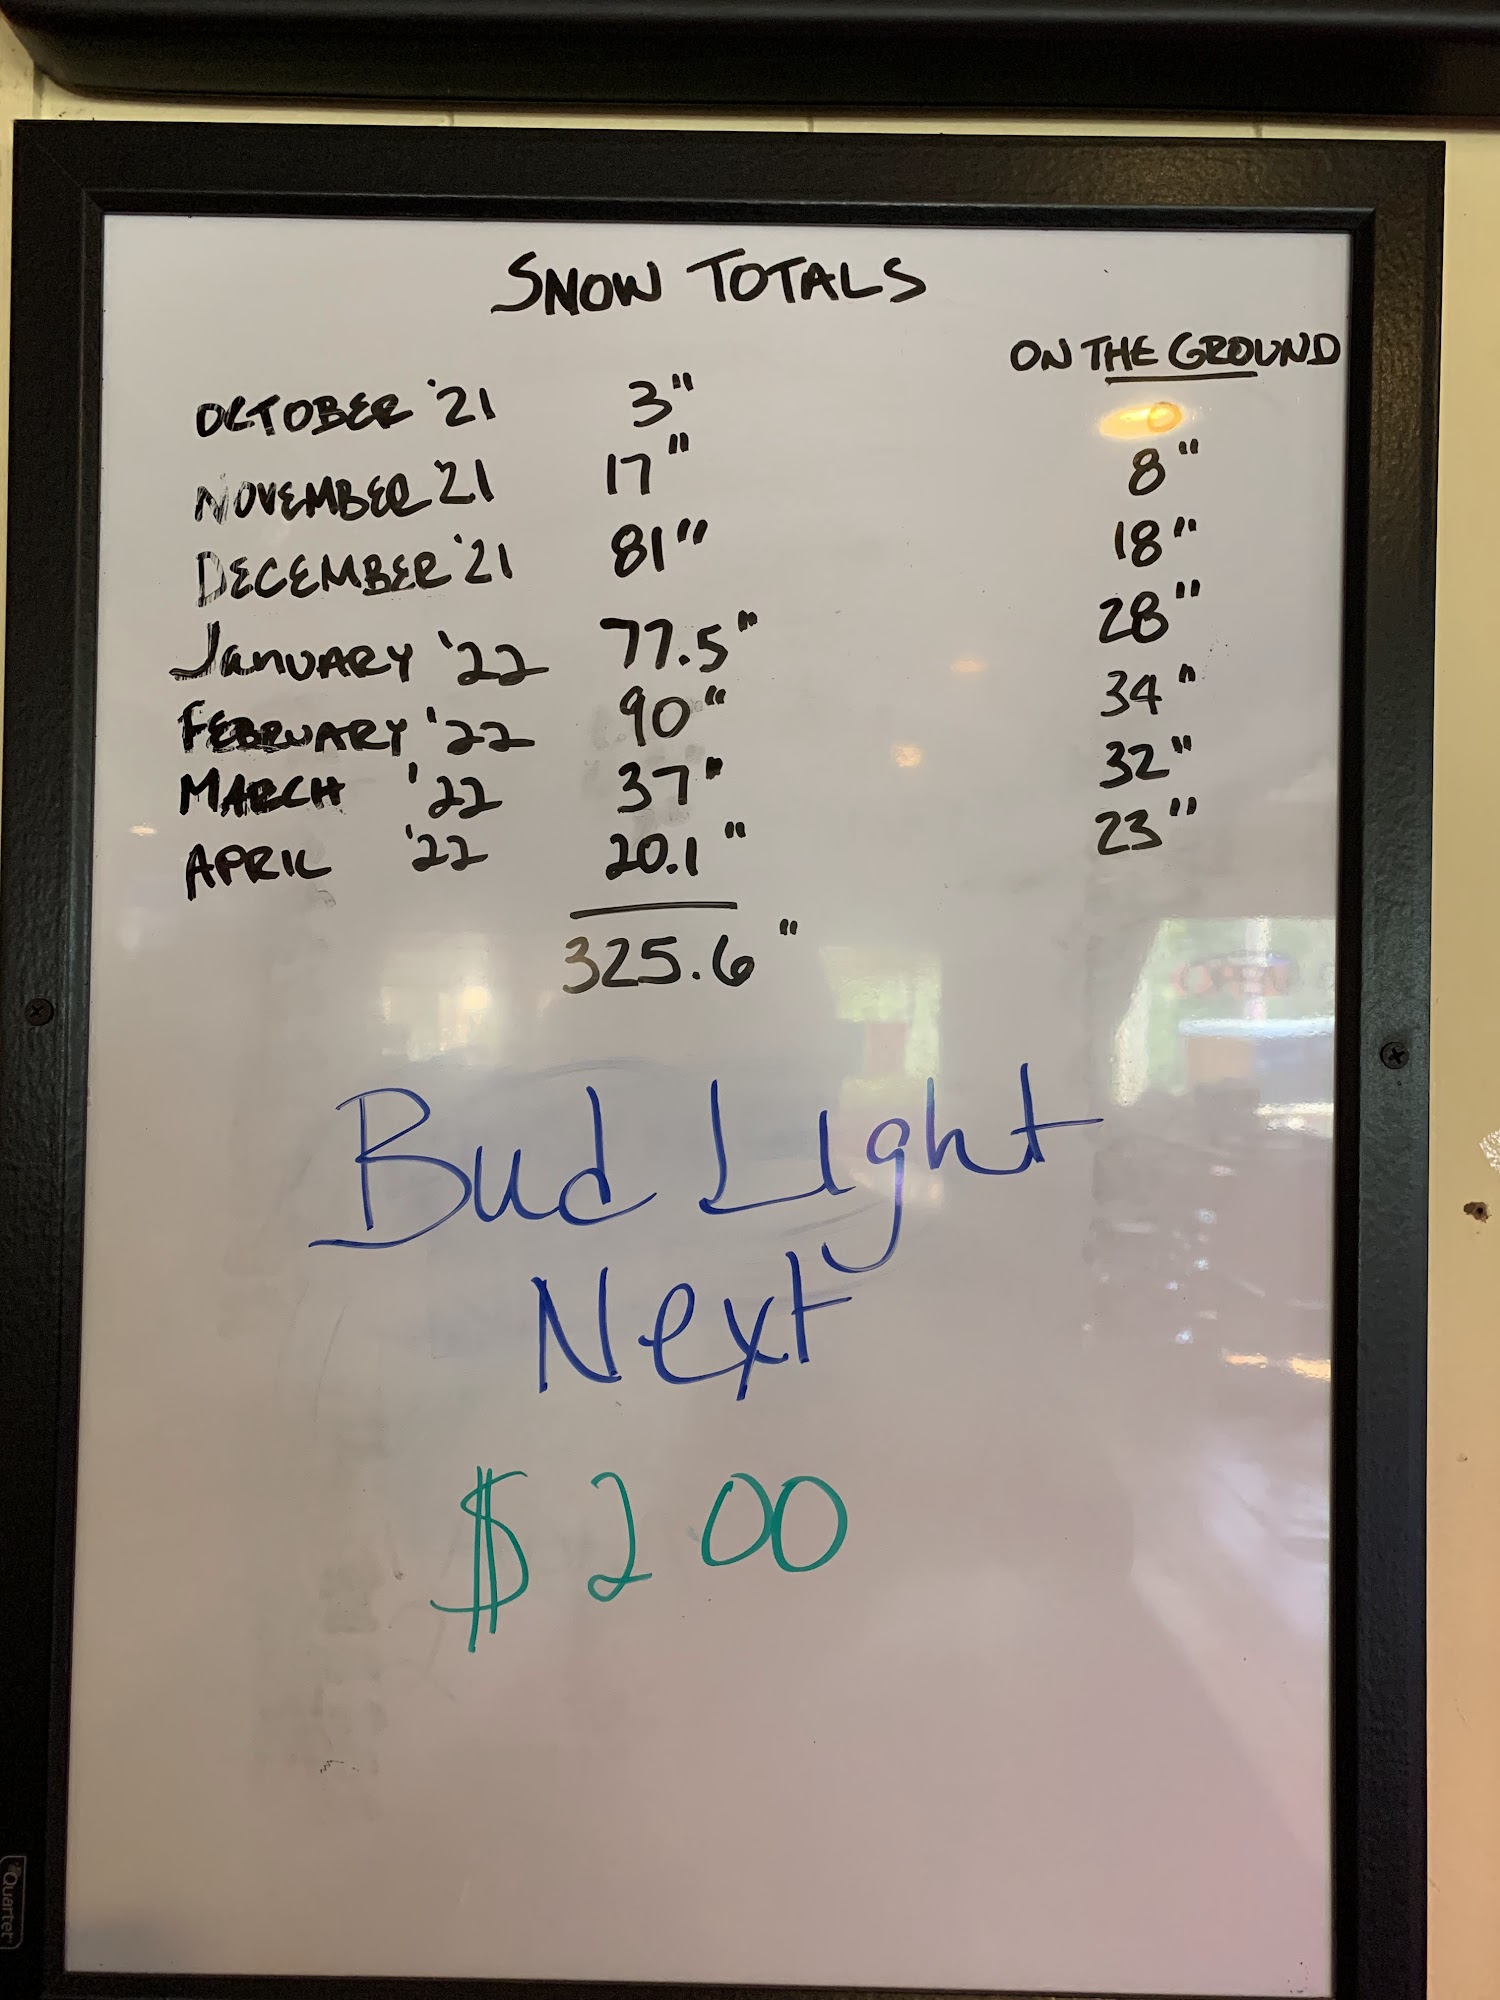 SNOW TOTALS
ON THE GROUND
OCTOBER '21 3" 0
NOVEMBER '21 17" 8"
DECEMBER '21 81" 18"
JANUARY '22 77.5" 28"
FEBRUARY '22 90" 34"
MARCH '22 37" 32"
APRIL '22 20.1" 23"
325.6"
Bud Light
Next
$2 00
Quartet